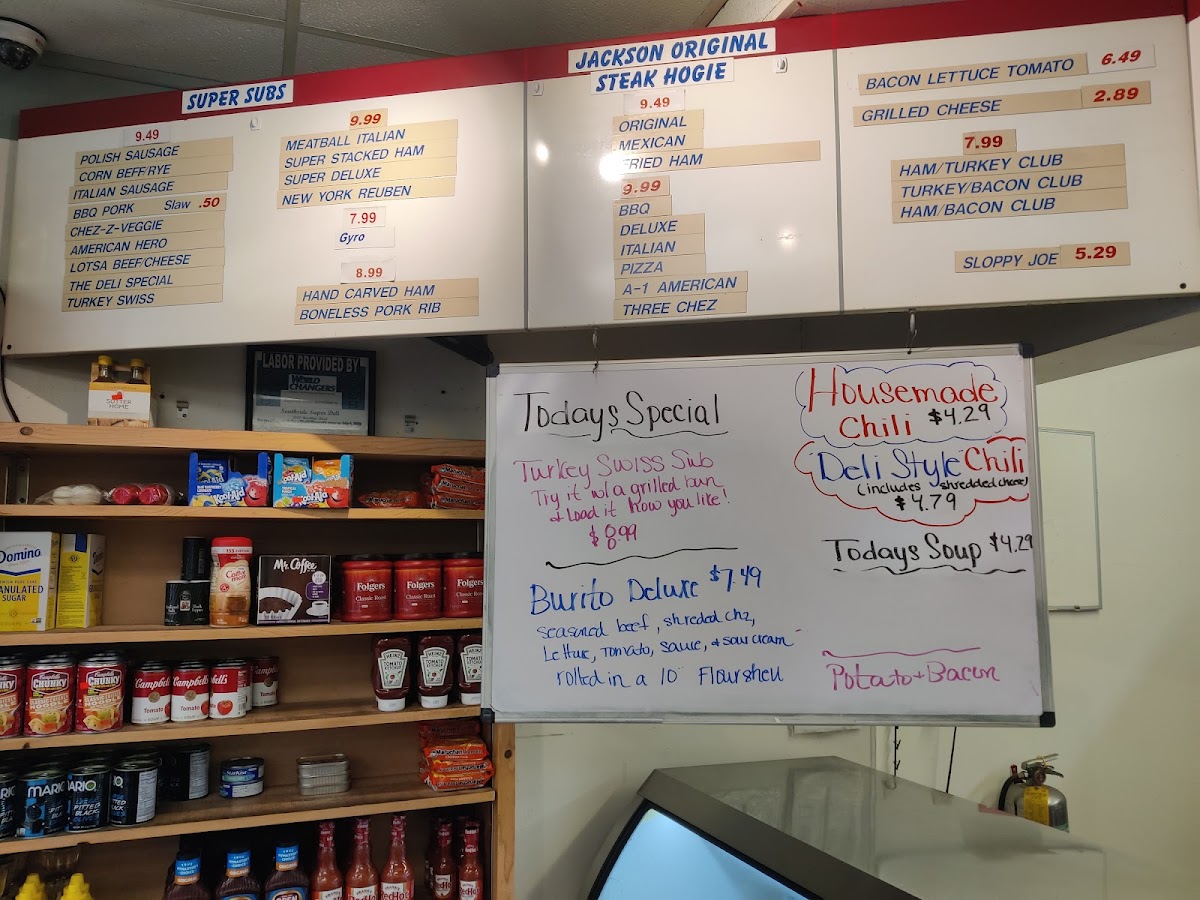 SUPER SUBS
9.49
POLISH SAUSAGE
CORN BEFF/RYE
ITALIAN SAUSAGE
BBQ PORK Slaw .50
CHEZ-Z-VEGGIE
AMERICAN HERO
LOTSA BEEF/CHEESE
THE DELI SPECIAL
TURKEY SWISS
9.99
MEATBALL ITALIAN
SUPER STACKED HAM
SUPER DELUXE
NEW YORK REUBEN
7.99
Gyro
8.99
HAND CARVED HAM
BONELESS PORK RIB
JACKSON ORIGINAL
STEAK HOGIE
9.49
ORIGINAL
MEXICAN
FRIED HAM
9.99
BBQ
DELUXE
ITALIAN
PIZZA
A-1 AMERICAN
THREE CHEZ
BACON LETTUCE TOMATO 6.49
GRILLED CHEESE 2.89
7.99
HAM/TURKEY CLUB
TURKEY/BACON CLUB
HAM/BACON CLUB
SLOPPY JOE 5.29
Todays Special
Turkey Swiss Sub
Try it w/a grilled bun
& Load it how you like!
Burito Deluxe $7.49
seasoned beef, shreded chz,
Lettuce, Tomato, sauce, & sour cream
rolled in a 10" Flourshell
Housemade
Chili $4.29
"Deli Style" Chili
(includes shredded cheese)
$4.79
Todays Soup $4.29
Potato + Bacon
LABOR PROVIDED BY
WORLD
CHANGERS
Southside Super Deli
SUTTER
HOME
Kool-Aid
Kool-Aid
Domino
GRANULATED
SUGAR
Mr. Coffee
Folgers
Classic Roast
Folgers
Classic Roast
Folgers
Classic Roast
HEINZ
TOMATO
KETCHUP
HEINZ
TOMATO
KETCHUP
HEINZ
CHUNKY
Campbell's
CHUNKY
Campbell's
CHUNKY
Campbell's
Tomato
Campbell's
Tomato
Campbell's
Tomato
Campbell's
Tomato
Maruchan
StarKist
MARIO
PITTED
BLACK
MARIO
PITTED
BLACK
RedHot
RedHot
RedHot